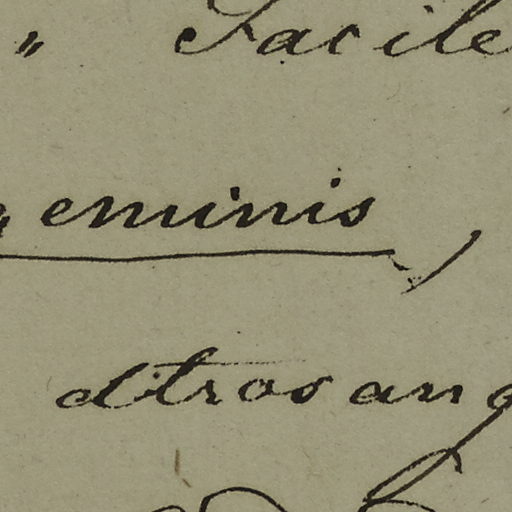 " Facile
geminis,
Atrosang